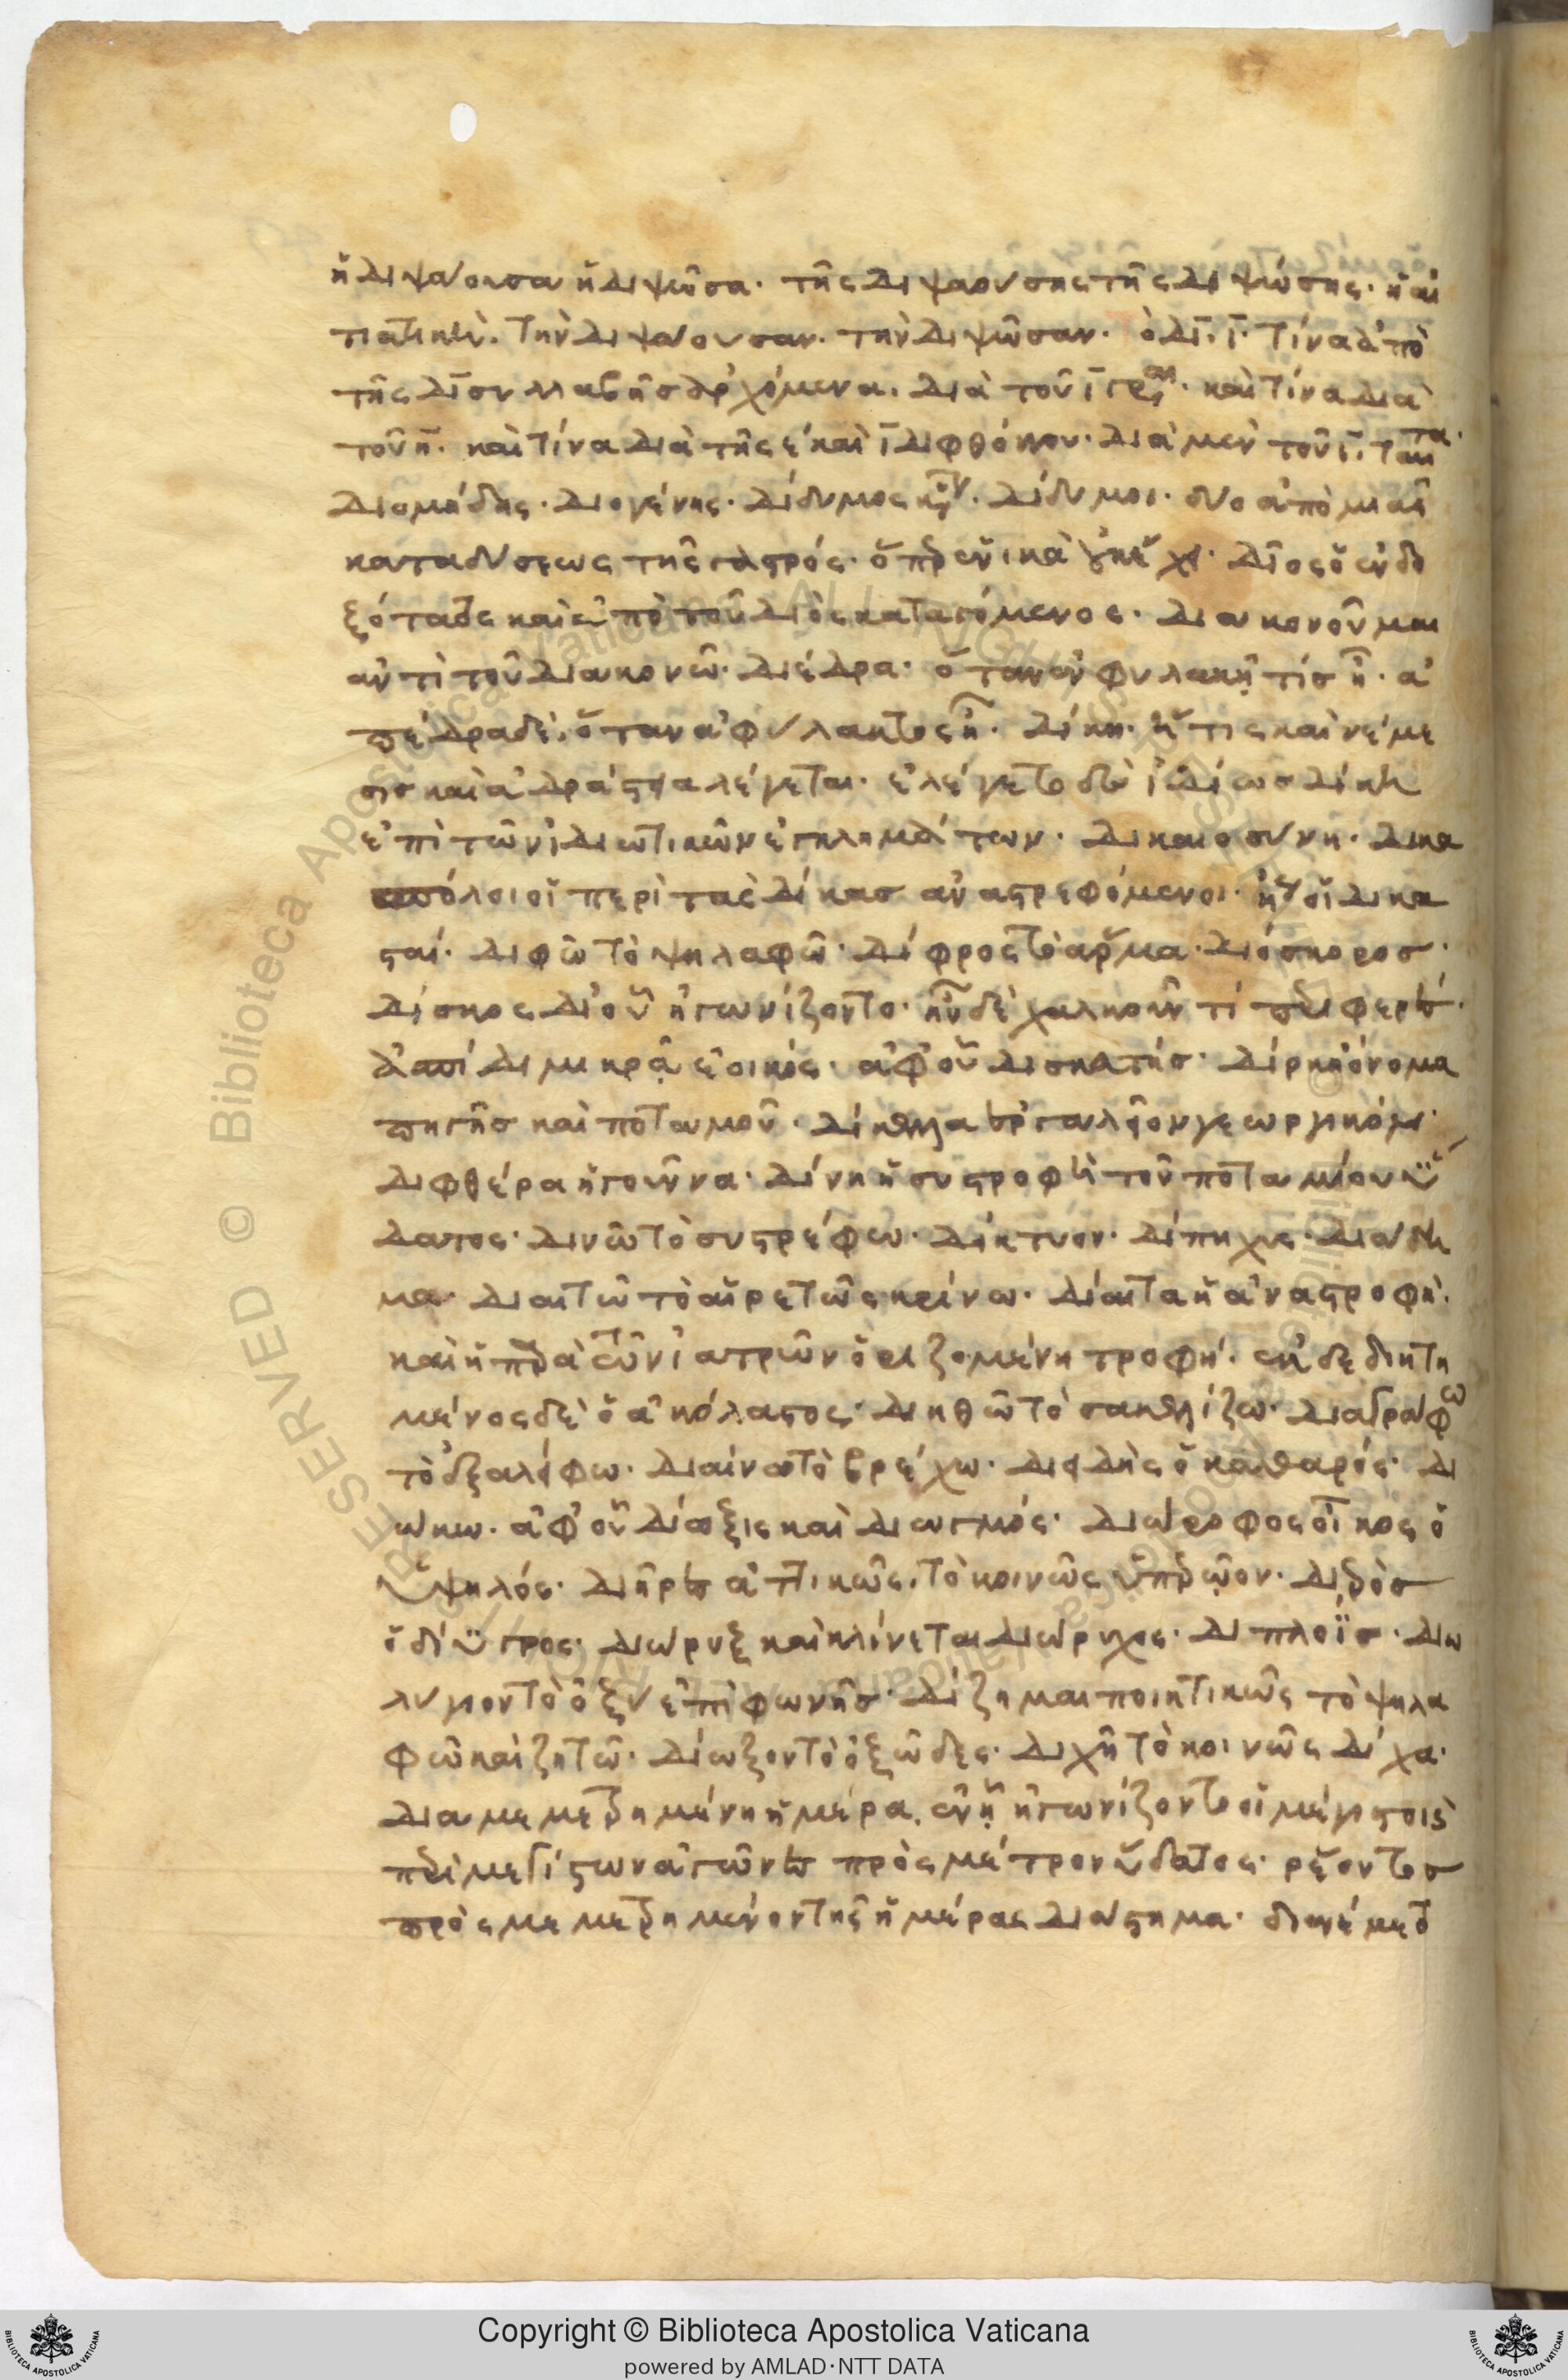 ἡ διψάουσα ἡ διψῶσα· τῆς διψαούσης τῆς διψώσης· ἡ αἰ
τιατικὴ. τὴν διψάουσαν. τὴν διψῶσαν. ὁ δι. ῑ. τίνα ἀπὸ
τῆς δι συλλαβῆς ἀρχόμενα. διὰ τοῦ ῑ· καὶ τίνα διὰ
τοῦ η. καὶ τίνα διὰ τῆς ε καὶ ῑ διφθόγγου· διὰ μὲν τοῦ ῑ. ταῦτα·
Διομήδης· Διογένης· Δίδυμος κύριον. δίδυμοι· δύο ἀπὸ μιᾶς
καταδύσεως τῆς γαστρός· Δῖος ὁ ἐνδο
ξότατος καὶ ἀπὸ τοῦ Διὸς καταγόμενος· διακονοῦμαι
ἀντὶ τοῦ διακονῶ· διέδρα· ὅταν ἐν φυλακῇ τὶς ῆ· ἀ
πέδρα δὲ, ὅταν ἀφύλακτος ῆ. δίκη· ἥτις καὶ νέμε
σις καὶ ἀδράστεια λέγεται· ἐλέγετο δὲ ἰδίως δίκη
ἐπὶ τῶν ἰδιωτικῶν ἐγκλημάτων· δικαιοσύνη· δικα
σπόλοι οἱ περὶ τὰς δίκας ἀναστρεφόμενοι· οἱ δικα
σταί· διφῶ τὸ ψηλαφῶ· δίφρος τὸ ἅρμα· Διόσκορος·
δίσκος δι' οὗ ἠγωνίζοντο· ἦν δὲ χαλκοῦν τί περιφερὲς·
ἀσπίδι μικρᾷ ἐοικός· ἀφ' οὗ δισκευτής· Δίρκη ὄνομα
πηγῆς καὶ ποταμοῦ· δίκελλα ἐργαλεῖον γεωργικόν·
διφθέρα ἡ γοῦνα· δίνη ἡ συστροφὴ τοῦ ποταμίου ὕ
δατος· δινῶ τὸ συστρέφω· δίκτυον· δίπηχυς· διάδη
μα· διαιτῶ τὸ αἱρετῶς κρίνω· δίαιτα ἡ ἀναστροφή.
καὶ ἡ παρὰ τῶν ἰατρῶν ὁριζομένη τροφή· ἐκδεδιῃτη
μένος δὲ ὁ ἀκόλαστος· διηθῶ τὸ σακκελίζω· διαγράφω
τὸ ἐξαλείφω· διαίνω τὸ βρέχω· διειδὴς ὁ καθαρός· δι
ώκω· ἀφ' οὗ δίωξις καὶ διωγμός· διώροφος οἶκος ὁ
ὑψηλός· διῆρες ἀττικῶς, τὸ κοινῶς ὑπερῷον· διερὸς
ὁ δίυγρος· διώρυξ καὶ κλίνεται διώρυχος· διπλοῒς· διω
λύγιον τὸ ὀξὺ ἐπὶ φωνῆς· δίζημαι ποιητικῶς τὸ ψηλα
φῶ καὶ ζητῶ· δίωζον τὸ ὀξῶδες· διχῆ τὸ κοινῶς δίχα·
διαμεμετρημένη ἡμέρα, ἐν ᾗ ἠγωνίζοντο οἱ μέγιστοι
περὶ μεγίστων ἀγῶνες πρὸς μέτρον ὕδατος· ῥέοντος
πρὸς μεμετρημένον τῆς ἡμέρας διάστημα· διενέμετο
Copyright © Biblioteca Apostolica Vaticana
powered by AMLAD·NTT DATA